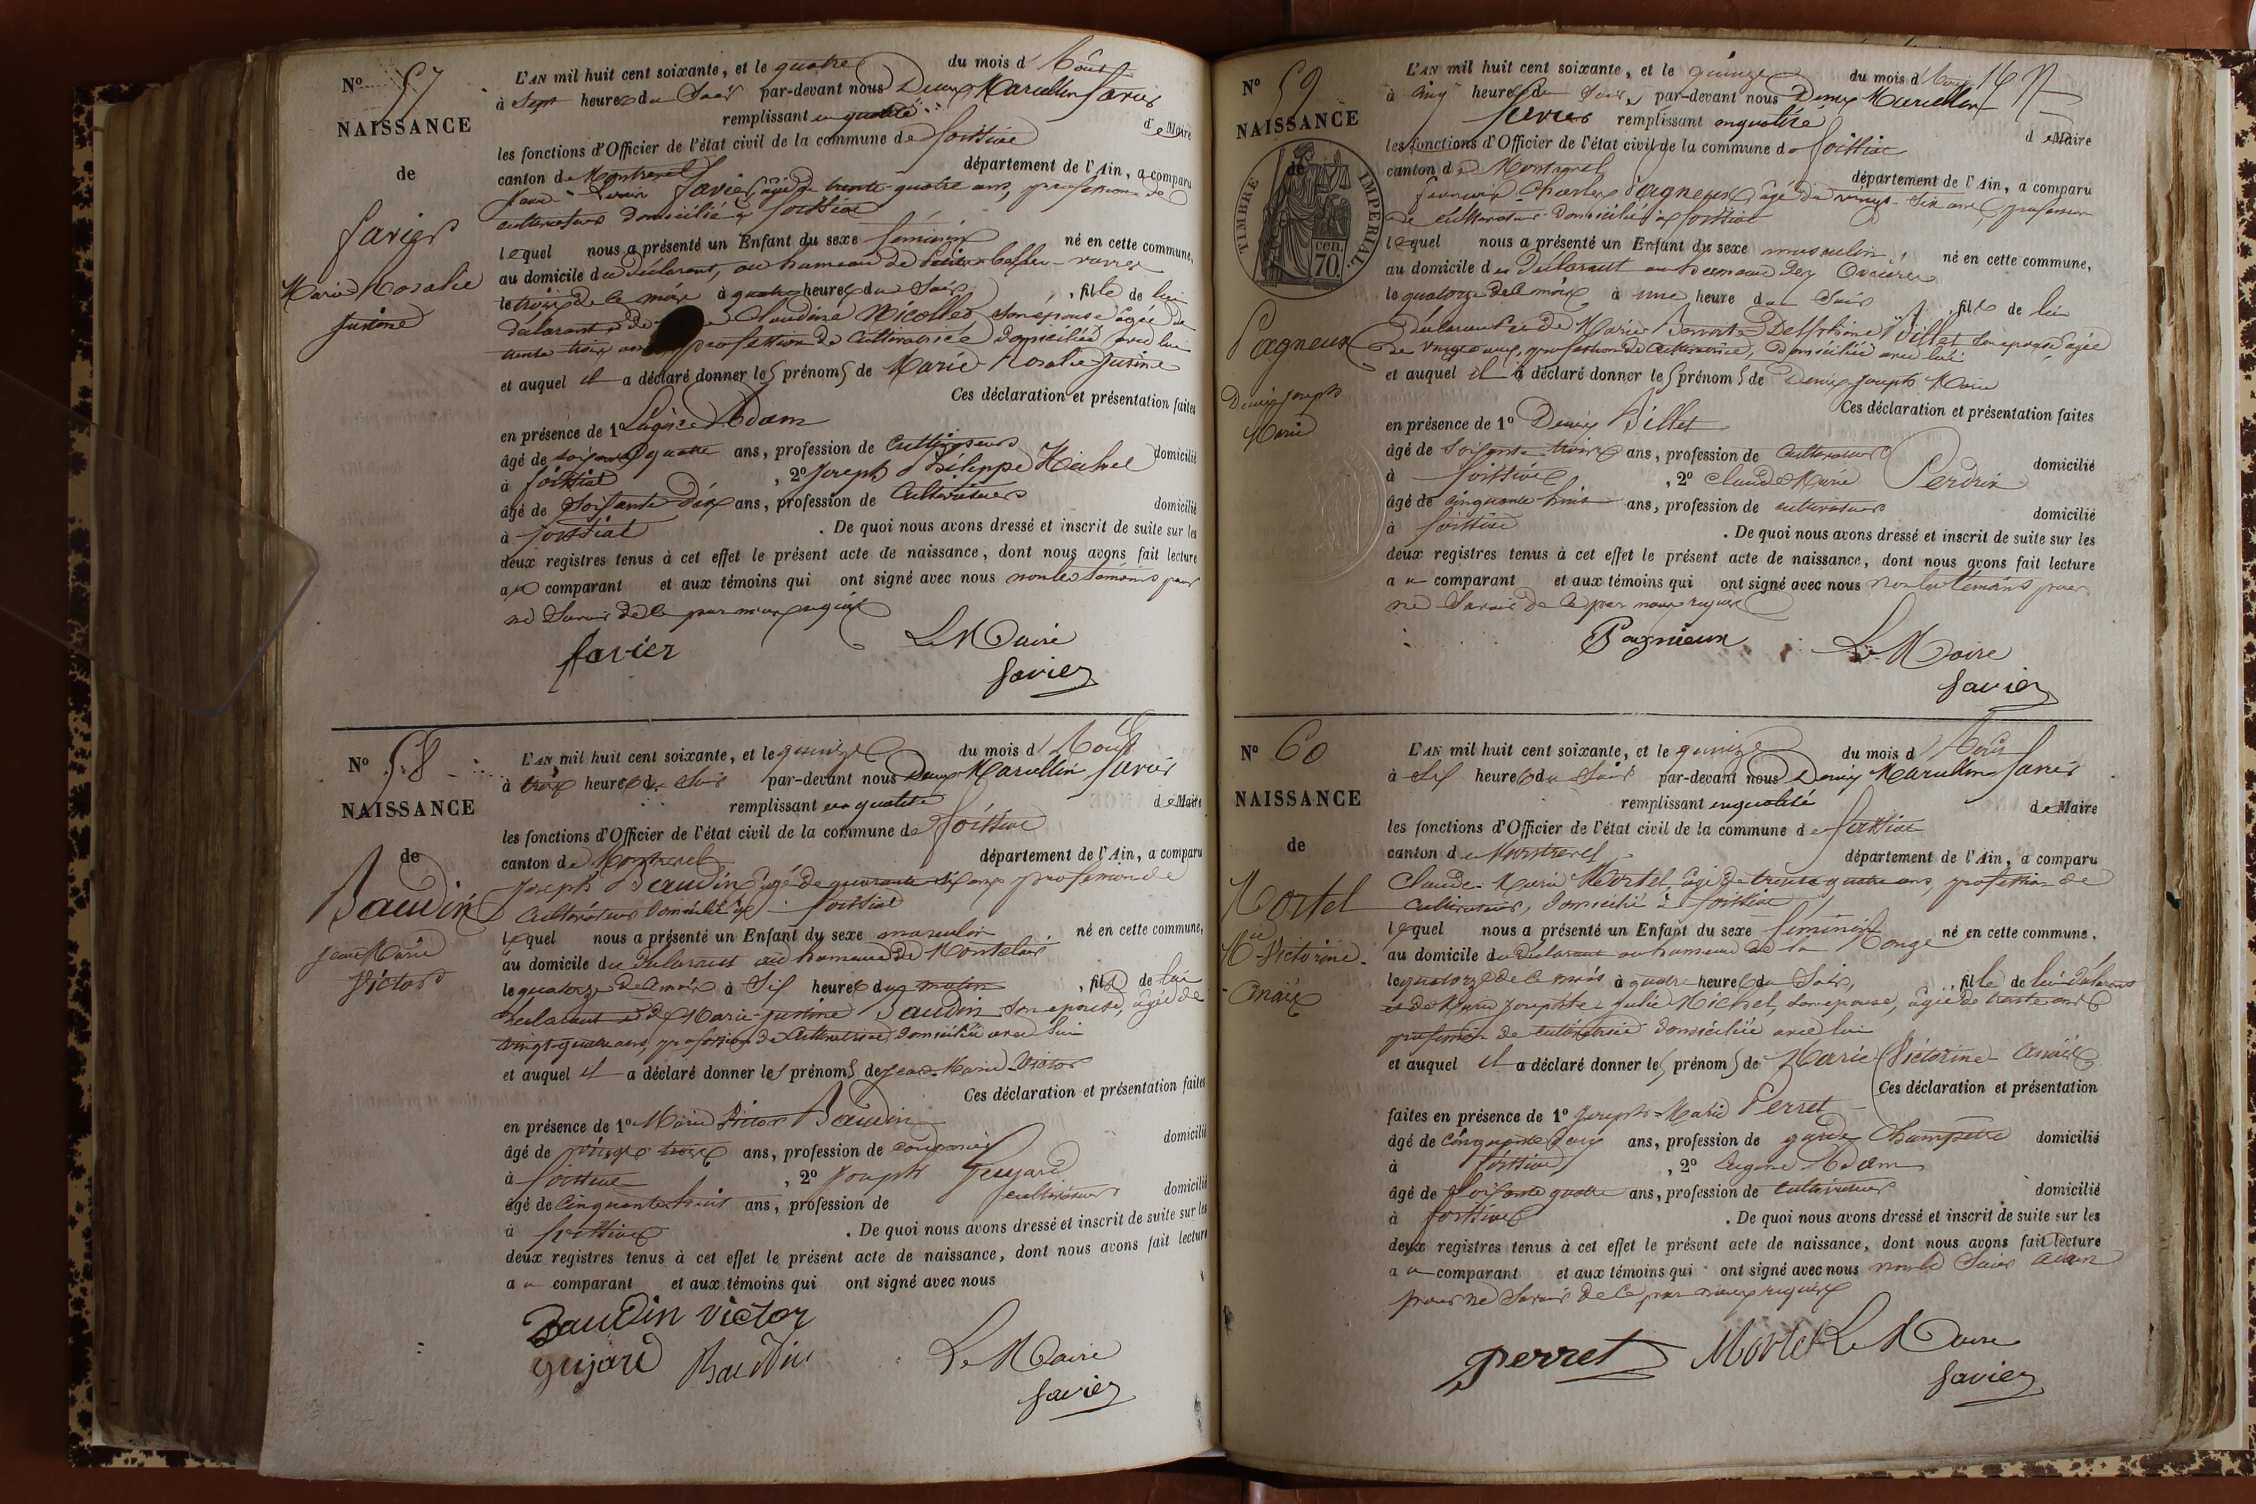 N° 57
NAISSANCE
de
Favier
Marie Rosalie
Justine
L'AN mil huit cent soixante, et le quatre du mois d'Août
à Sept heures du Soir par-devant nous Denis Marcellin Favier
remplissant en qualité de Maire
les fonctions d'Officier de l'état civil de la commune de Foissiat
canton de Montrevel département de l'Ain, a comparu
Favier, âgé de trente quatre ans, profession de
cultivateur domicilié à Foissiat
lequel nous a présenté un Enfant du sexe féminin né en cette commune,
au domicile du déclarant, au hameau de
le trois de ce mois à quatre heures du Soir, fille de lui
déclarant et de Claudine Nicollet son épouse âgée de
trente trois ans profession de Cultivatrice domiciliée avec lui
et auquel il a déclaré donner les prénoms de Marie Rosalie Justine
Ces déclaration et présentation faites
en présence de 1° Eugène Adam
âgé de soixante quatre ans, profession de Cultivateur domicilié
à Foissiat, 2° Joseph Philippe Michel
âgé de Soixante Dix ans, profession de Cultivateur domicilié
à Foissiat. De quoi nous avons dressé et inscrit de suite sur les
deux registres tenus à cet effet le présent acte de naissance, dont nous avons fait lecture
au comparant et aux témoins qui ont signé avec nous non les témoins pour
ne Savoir de ce par nous requis
Favier Le Maire
Favier
N° 58
NAISSANCE
de
Baudin
Jean Marie
Victor
L'AN mil huit cent soixante, et le quinze du mois d'Août
à trois heures du Soir par-devant nous Denis Marcellin Favier
remplissant en qualité de Maire
les fonctions d'Officier de l'état civil de la commune de Foissiat
canton de Montrevel département de l'Ain, a comparu
Joseph Baudin âgé de quarante six ans profession de
Cultivateur domicilié à Foissiat
lequel nous a présenté un Enfant du sexe masculin né en cette commune,
au domicile du déclarant au hameau de
le quatorze de ce mois à Six heures du matin, fils de lui
déclarant et de Marie-Justine Baudin Son épouse, âgée de
vingt quatre ans, profession de Cultivatrice domiciliée avec lui
et auquel il a déclaré donner les prénoms de Jean-Marie-Victor
Ces déclaration et présentation faites
en présence de 1° Marie Victor Baudin
âgé de vingt trois ans, profession de domicilié
à Foissiat, 2° Joseph Guyard
âgé de Cinquante huit ans, profession de cultivateur domicilié
à Foissiat. De quoi nous avons dressé et inscrit de suite sur les
deux registres tenus à cet effet le présent acte de naissance, dont nous avons fait lecture
au comparant et aux témoins qui ont signé avec nous
Baudin victor
gujard Baudin Le Maire
Favier
N° 59
NAISSANCE
de
TIMBRE IMPERIAL
70 cen.
Pagneux
Denis Joseph
Marie
L'AN mil huit cent soixante, et le quinze du mois d'Août
à Cinq heures du Soir, par-devant nous Denis Marcellin
Favier remplissant en qualité de Maire
les fonctions d'Officier de l'état civil de la commune de Foissiat
canton de Montrevel département de l'Ain, a comparu
Charles Pagneux âgé de vingt-six ans, profession
de Cultivateur domicilié à Foissiat
lequel nous a présenté un Enfant du sexe masculin né en cette commune,
au domicile du déclarant au hameau des
le quatorze de ce mois à une heure du Soir, fils de lui
déclarant et de Marie Delphine Billet son épouse âgée
de vingt ans, profession de Cultivatrice, domiciliée avec lui
et auquel il a déclaré donner les prénoms de Denis Joseph Marie
Ces déclaration et présentation faites
en présence de 1° Denis Billet
âgé de Soixante trois ans, profession de Cultivateur domicilié
à Foissiat, 2° Claude Marie Perdrix
âgé de cinquante huit ans, profession de cultivateur domicilié
à Foissiat. De quoi nous avons dressé et inscrit de suite sur les
deux registres tenus à cet effet le présent acte de naissance, dont nous avons fait lecture
au comparant et aux témoins qui ont signé avec nous non les témoins pour
ne Savoir de ce par nous requis
Pagneux Le Maire
Favier
N° 60
NAISSANCE
de
Mortel
Mie Victorine
Anaïs
L'AN mil huit cent soixante, et le quinze du mois d'Août
à Six heures du Soir par-devant nous Denis Marcellin Favier
remplissant en qualité de Maire
les fonctions d'Officier de l'état civil de la commune de Foissiat
canton de Montrevel département de l'Ain, a comparu
Claude-Marie Mortel, âgé de trente quatre ans, profession de
Cultivateur, domicilié à Foissiat
lequel nous a présenté un Enfant du sexe féminin né en cette commune,
au domicile du déclarant au hameau de la
le quatorze de ce mois à quatre heures du Soir, fille de lui déclarant
et de Marie Josephte Julie Michel, son épouse, âgée de trente ans
profession de cultivatrice domiciliée avec lui
et auquel il a déclaré donner les prénoms de Marie Victorine Anaïs
Ces déclaration et présentation
faites en présence de 1° Joseph-Marie Perret
âgé de Cinquante ans, profession de garde Champêtre domicilié
à Foissiat, 2° Eugène Adam
âgé de Soixante quatre ans, profession de cultivateur domicilié
à Foissiat. De quoi nous avons dressé et inscrit de suite sur les
deux registres tenus à cet effet le présent acte de naissance, dont nous avons fait lecture
au comparant et aux témoins qui ont signé avec nous non le Sieur Adam
pour ne Savoir de ce par nous requis
Perret Mortel Le Maire
Favier